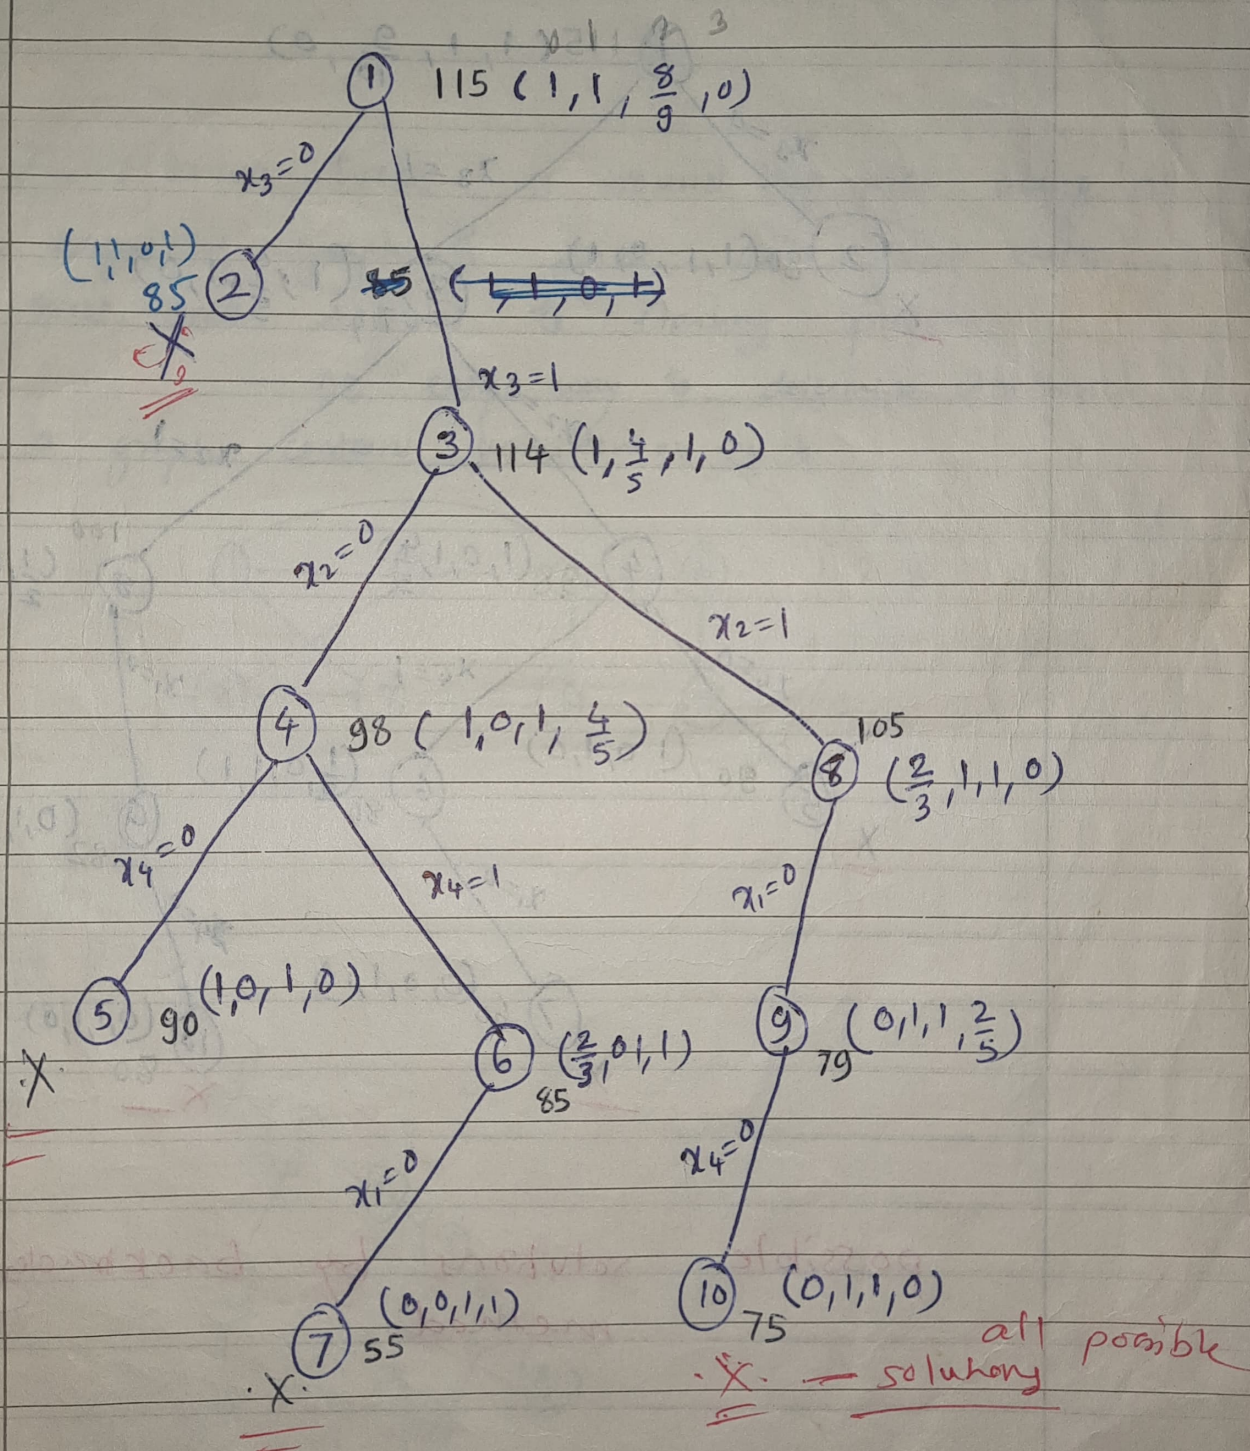 ① 115 (1, 1, 8/9, 0)
x₃=0
(1,1,0,1)
85 ②
X
85 (1, 1, 0, 1)
x₃=1
③ 114 (1, 4/5, 1, 0)
x₂=0
x₂=1
④ 98 (1, 0, 1, 4/5)
105
⑧ (2/3, 1, 1, 0)
x₄=0
x₄=1
x₁=0
⑤ 90 (1,0,1,0)
X
⑥ (2/3, 0 1, 1)
85
⑨ 79 (0, 1, 1, 2/5)
x₁=0
x₄=0
⑦ 55 (0,0,1,1)
X
⑩ 75 (0,1,1,0)
X — all possible
solutions